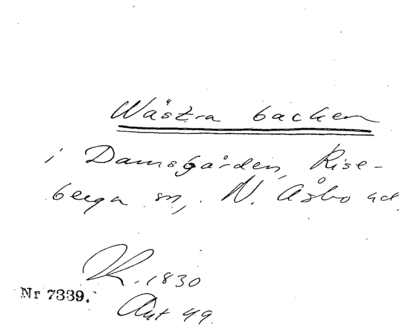 Wästra backen
i Damsgården, Rise-
berga sn, N. Åsbo hd.
K. 1830
Nr 7339.
Akt 49